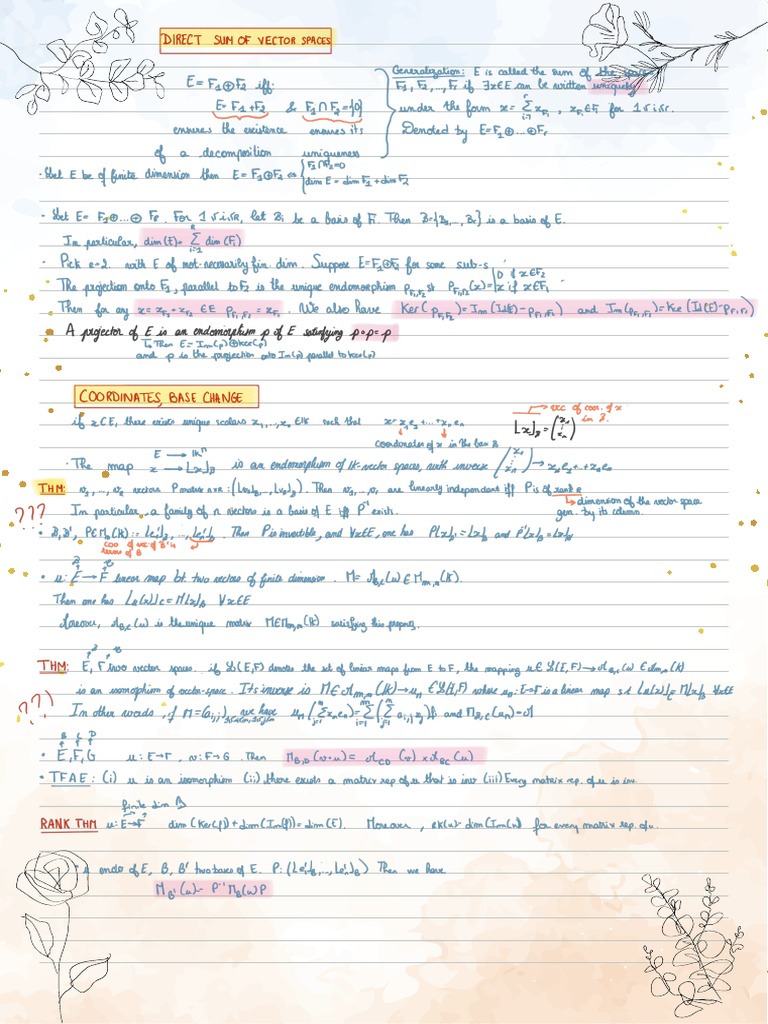 DIRECT SUM OF VECTOR SPACES
E = F₁⊕F₂ iff:
E = F₁+F₂ & F₁∩F₂={0}
ensures the existence ensures its
of a decomposition uniqueness
Generalization: E is called the sum of the space
F₁, F₂, ..., Fᵣ if ∃x∈E can be written uniquely
under the form x = Σ x_{Fᵢ}, x_{Fᵢ}∈Fᵢ for 1≤i≤r.
Denoted by E=F₁⊕...⊕Fᵣ
· Let E be of finite dimension then E = F₁⊕F₂ ⇔ { F₁∩F₂=0
dim E = dim F₁ + dim F₂
· Let E = F₁⊕...⊕Fᵣ. For 1≤i≤r, let Bᵢ be a basis of Fᵢ. Then B={B₁,..., Bᵣ} is a basis of E.
In particular, dim(E) = Σ dim(Fᵢ)
· Pick r=2. with E of not-necessarily fin. dim. Suppose E=F₁⊕F₂ for some sub-s
The projection onto F₁, parallel to F₂ is the unique endomorphism p_{F₁,F₂} st p_{F₁,F₂}(x)= | 0 if x∈F₂
x if x∈F₁
Then for any x = x_{F₁}+x_{F₂} ∈ E p_{F₁,F₂} = x_{F₁}. We also have Ker(p_{F₁,F₂}) = Im(Id(E)-p_{F₁,F₂}) and Im(p_{F₁,F₂}) = Ker(Id(E)-p_{F₁,F₂})
A projector of E is an endomorphism p of E satisfying p∘p=p
↳ Then E = Im(p)⊕Ker(p)
and p is the projection onto Im(p) parallel to Ker(p)
COORDINATES, BASE CHANGE
if x∈E, there exists unique scalars x₁,...,xₙ ∈ K such that x = x₁e₁+...+xₙeₙ
coordinates of x in the base B
→ vec of coor. of x
in B.
[x]_B = (x₁ ⋮ xₙ)
· The map E → Kⁿ
x → [x]_B is an endomorphism of K-vector spaces, with inverse (x₁ ⋮ xₙ) → x₁e₁+...+xₙeₙ
THM: v₁, ..., vᵣ vectors P matrix n×r : ([v₁]_B,..., [vᵣ]_B). Then v₁, ..., vᵣ are linearly independent iff P is of rank r
↳ dimension of the vector space
gen. by its column.
??? In particular, a family of n vectors is a basis of E iff P⁻¹ exist.
· B, B', P∈Mₙ(K) := [e'₁]_B, ..., [e'ₙ]_B. Then P is invertible, and ∀x∈E, one has P[x]_B' = [x]_B and P⁻¹[x]_B = [x]_B'
coo of vec of B' in
terms of B
B C
· u: E → F linear map bt. two vectors of finite dimension. M = M_{B,C}(u) ∈ M_{m,n}(K).
Then one has [u(x)]_C = M[x]_B ∀x∈E
Moreover, M_{B,C}(u) is the unique matrix M∈M_{m,n}(K) satisfying this property.
THM: E, F two vector spaces. if L(E,F) denotes the set of linear maps from E to F, the mapping u∈L(E,F) → M_{B,C}(u) ∈ M_{m,n}(K)
is an isomorphism of vector-space. Its inverse is M∈M_{m,n}(K) → u_M ∈ L(E,F) where u_M: E→F is a linear map s.t [u(x)]_C = M[x]_B ∀x∈E
??) In other words, if M=(a_{i,j}), we have u_M(Σxₙeₙ) = Σ(Σ a_{i,j} xⱼ)fᵢ and M_{B,C}(u_M)=M
B C D
· E, F, G u: E→F, v: F→G. Then M_{B,D}(v∘u) = M_{C,D}(v) × M_{B,C}(u)
· TFAE: (i) u is an isomorphism (ii) there exists a matrix rep of u that is inv (iii) Every matrix rep. of u is inv.
finite dim
RANK THM u: E→F dim(Ker(f))+dim(Im(f))=dim(E). Moreover, rk(u)=dim(Im(u)) for every matrix rep. of u.
· u endo of E, B, B' two bases of E. P: ([e'₁]_B,..., [e'ₙ]_B) Then we have
M_B'(u) = P⁻¹ M_B(u) P